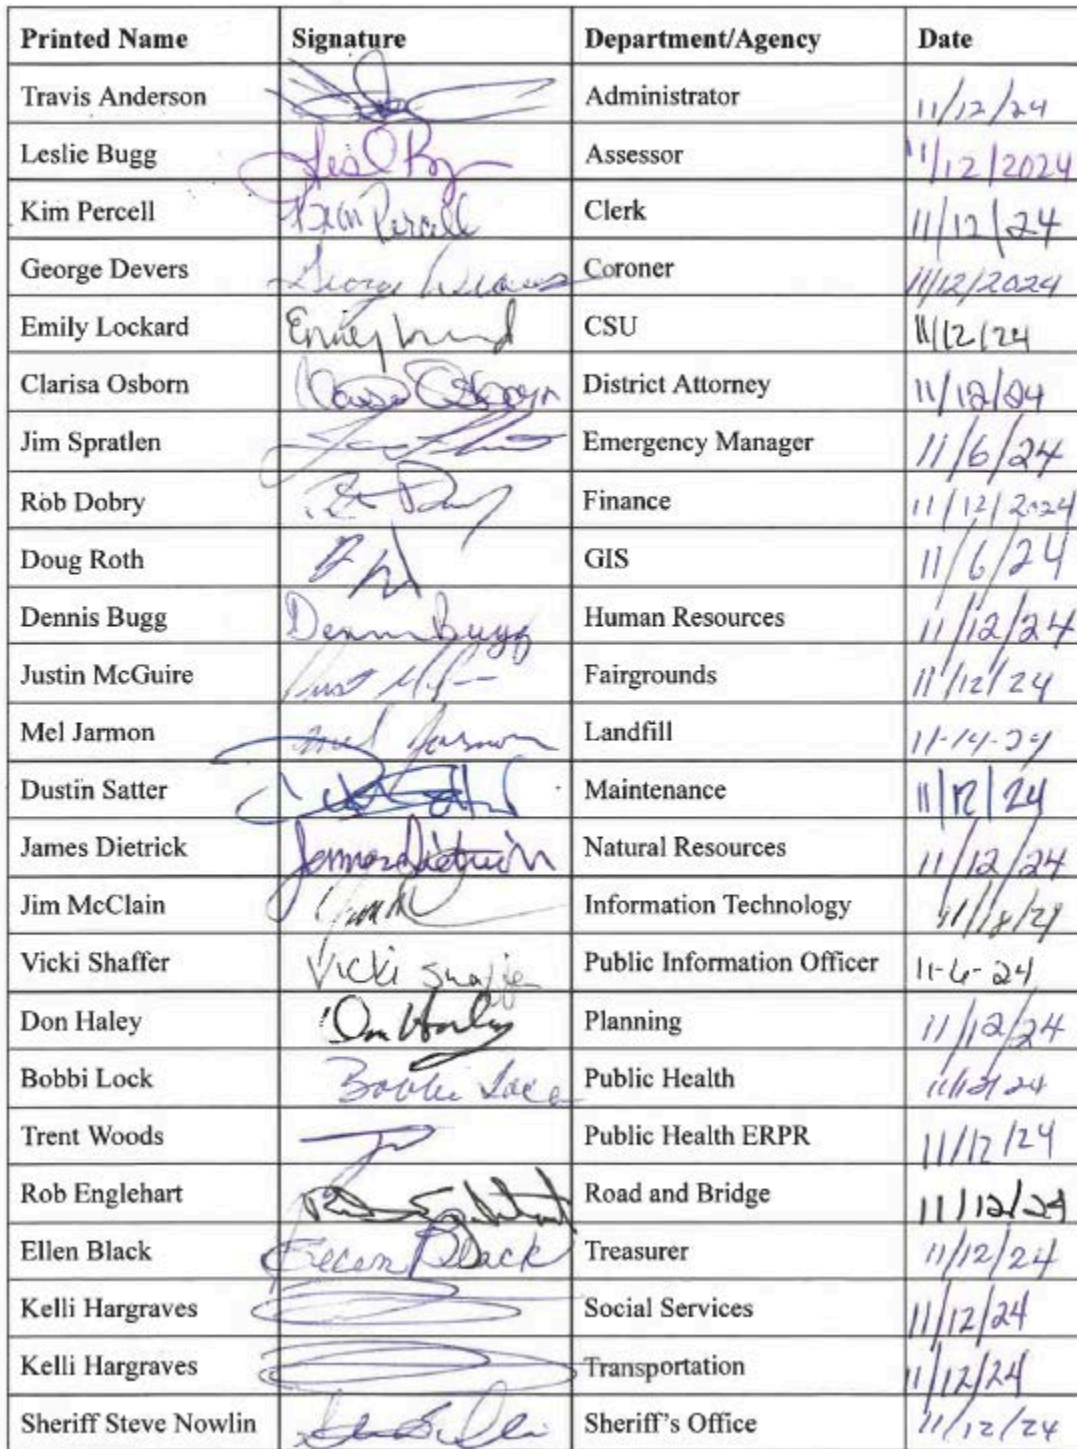 Printed Name Signature Department/Agency Date
Travis Anderson Administrator 11/12/24
Leslie Bugg Assessor 11/12/2024
Kim Percell Kim Percell Clerk 11/12/24
George Devers George Coroner 11/12/2024
Emily Lockard Emily CSU 11/12/24
Clarisa Osborn Osborn District Attorney 11/12/24
Jim Spratlen Emergency Manager 11/6/24
Rob Dobry Finance 11/12/2024
Doug Roth GIS 11/6/24
Dennis Bugg Dennis Bugg Human Resources 11/12/24
Justin McGuire Fairgrounds 11/12/24
Mel Jarmon Mel Jarmon Landfill 11-14-24
Dustin Satter Maintenance 11/12/24
James Dietrick James Dietrich Natural Resources 11/12/24
Jim McClain Information Technology 11/18/24
Vicki Shaffer Vicki Shaffer Public Information Officer 11-6-24
Don Haley Don Haley Planning 11/12/24
Bobbi Lock Bobbi Lock Public Health 11/12/24
Trent Woods Public Health ERPR 11/12/24
Rob Englehart Road and Bridge 11/12/24
Ellen Black Ellen Black Treasurer 11/12/24
Kelli Hargraves Social Services 11/12/24
Kelli Hargraves Transportation 11/12/24
Sheriff Steve Nowlin Sheriff's Office 11/12/24